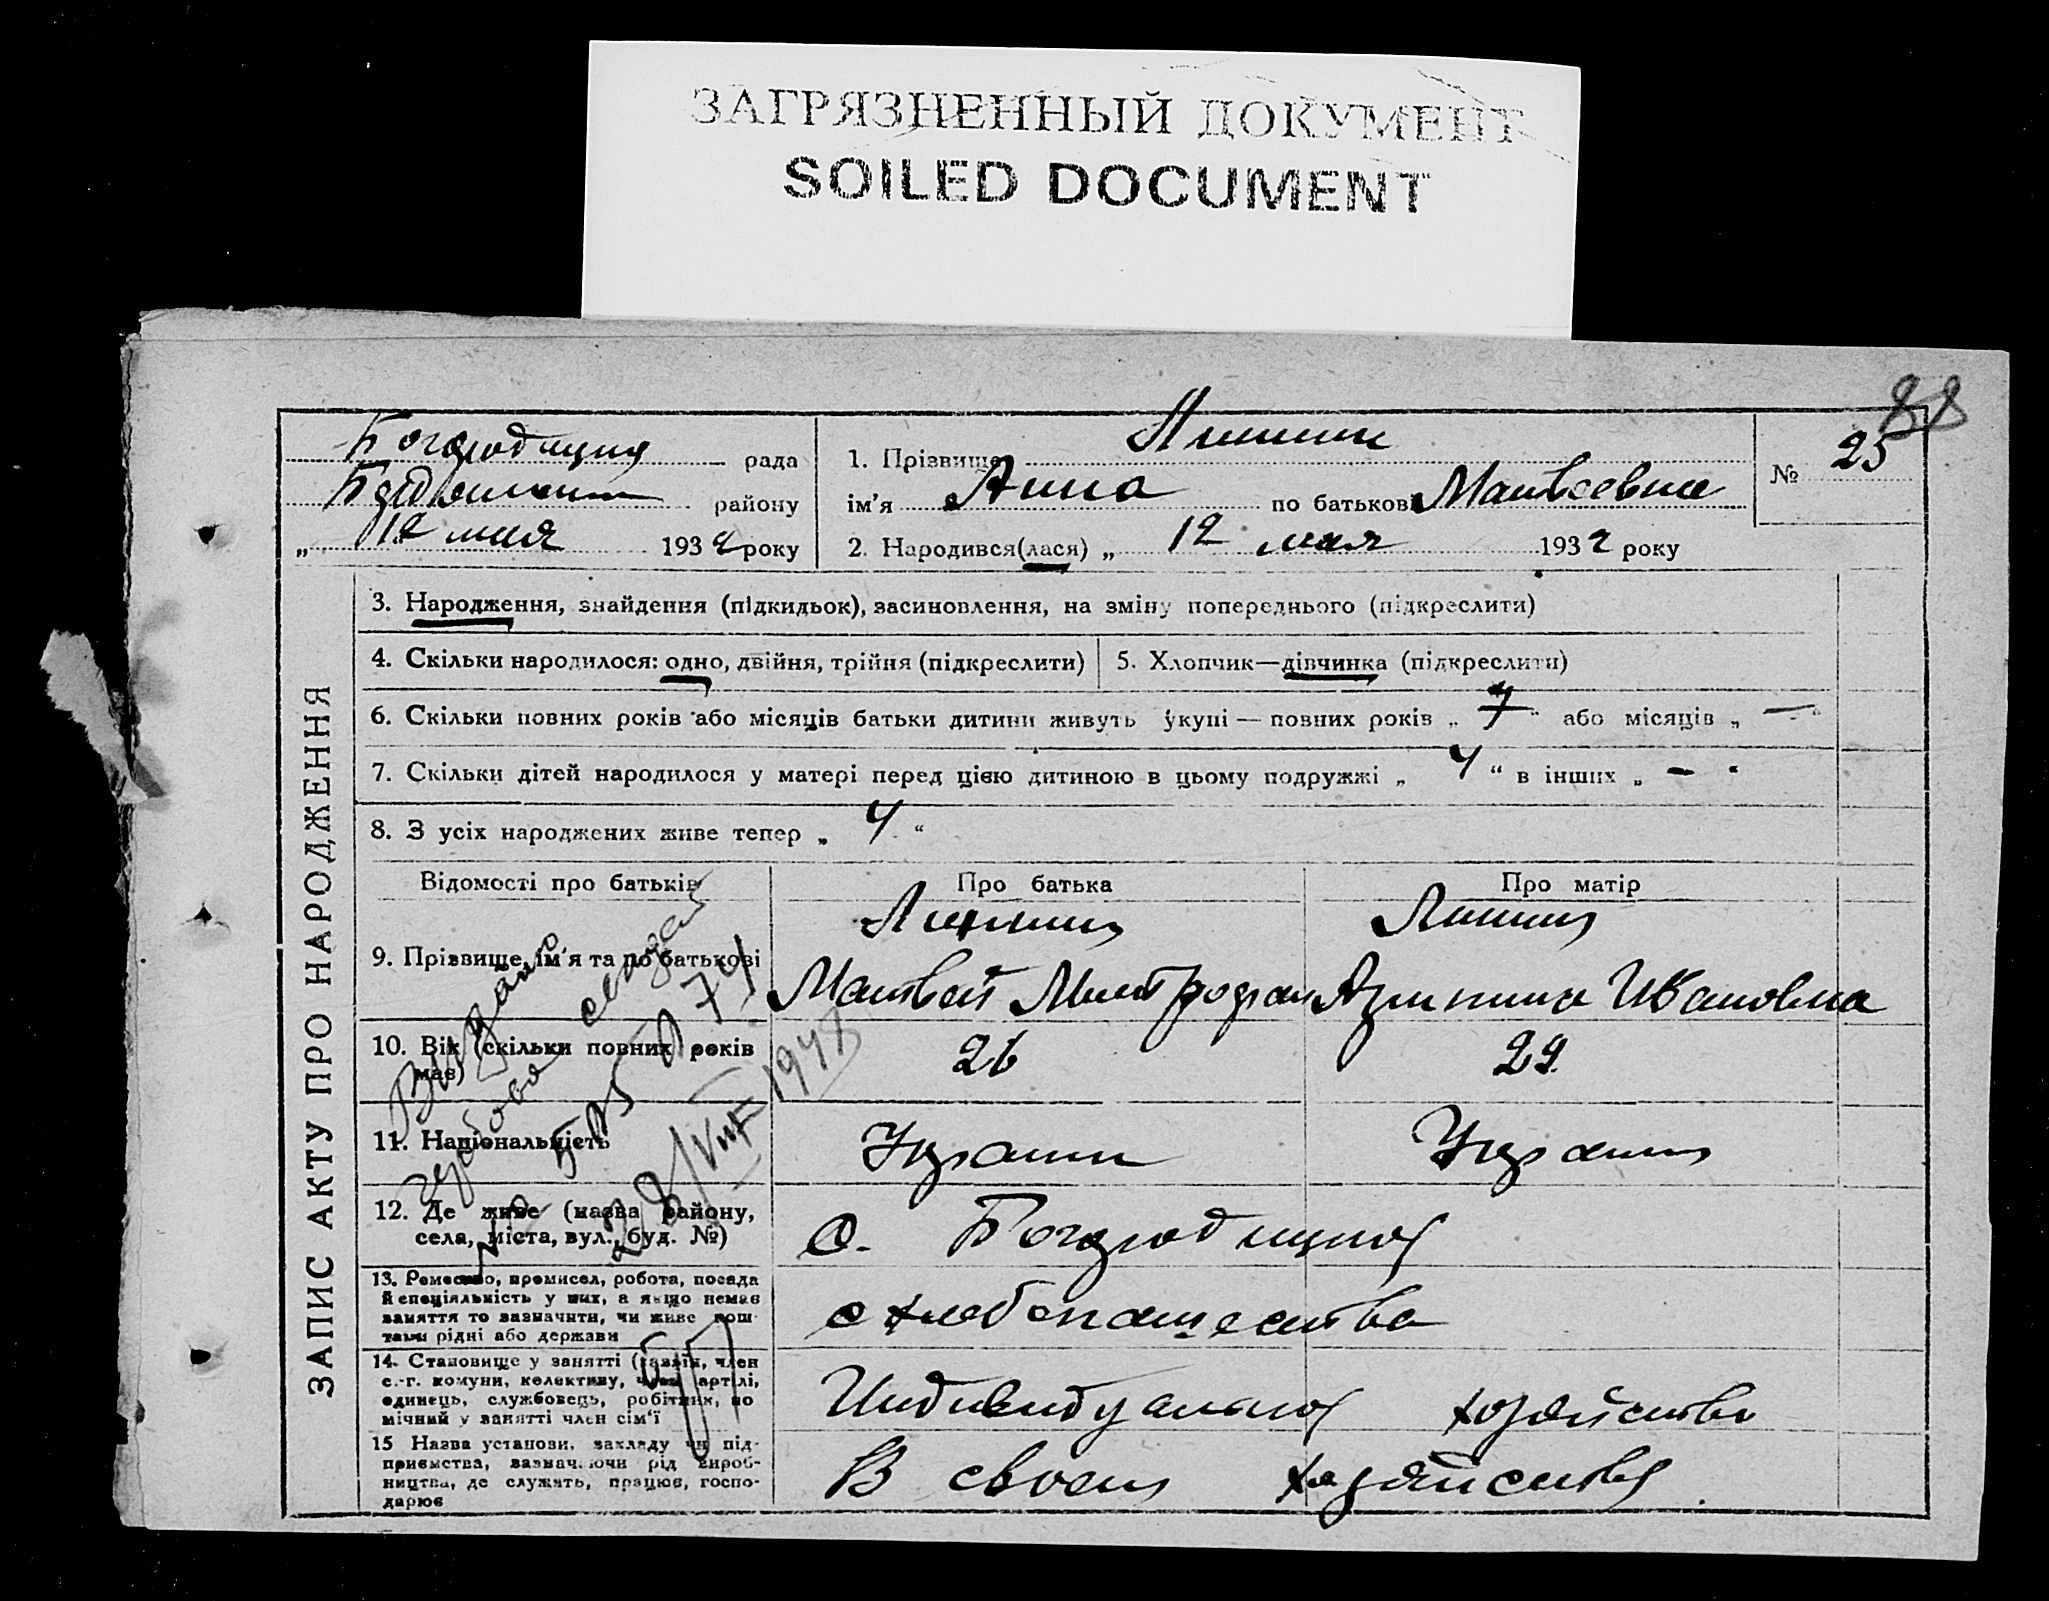 ЗАГРЯЗНЕННЫЙ ДОКУМЕНТ
SOILED DOCUMENT
88
рада
району
„ 12 мая 1932 року
1. Прізвище
ім'я Анна по батькові Матвеевна
2. Народився(лася) „ 12 мая 1932 року
№ 25
ЗАПИС АКТУ ПРО НАРОДЖЕННЯ
3. Народження, знайдення (підкидьок), засиновлення, на зміну попереднього (підкреслити)
4. Скільки народилося: одно, двійня, трійня (підкреслити)
5. Хлопчик—дівчинка (підкреслити)
6. Скільки повних років або місяців батьки дитини живуть укупі — повних років „ 7 “ або місяців „ — “
7. Скільки дітей народилося у матері перед цією дитиною в цьому подружжі „ 4 “ в інших „ - “
8. З усіх народжених живе тепер „ 4 “
Відомості про батьків
Про батька
Про матір
9. Прізвище, ім'я та по батькові
Матвей Митрофан
Ивановна
10. Вік (скільки повних років
має)
26
29
11. Національність
Украин
Украин
12. Де живе (назва району,
села, міста, вул., буд. №)
с.
13. Ремесло, промисел, робота, посада
й спеціяльність у них, а якщо немає
заняття то зазначити, чи живе кош-
тами рідні або держави
хлебопашества
14. Становище у занятті (хазяїн, член
с.-г. комуни, колективу, член артілі,
одинець, службовець, робітник, по
мічний у занятті член сім'ї
Индивидуальноя хозяйство
15 Назва установи, закладу чи під-
приємства, зазначаючи рід вироб-
ництва, де служить, працює, госпо-
дарює
В своем хозяйстве
Выдано
1948